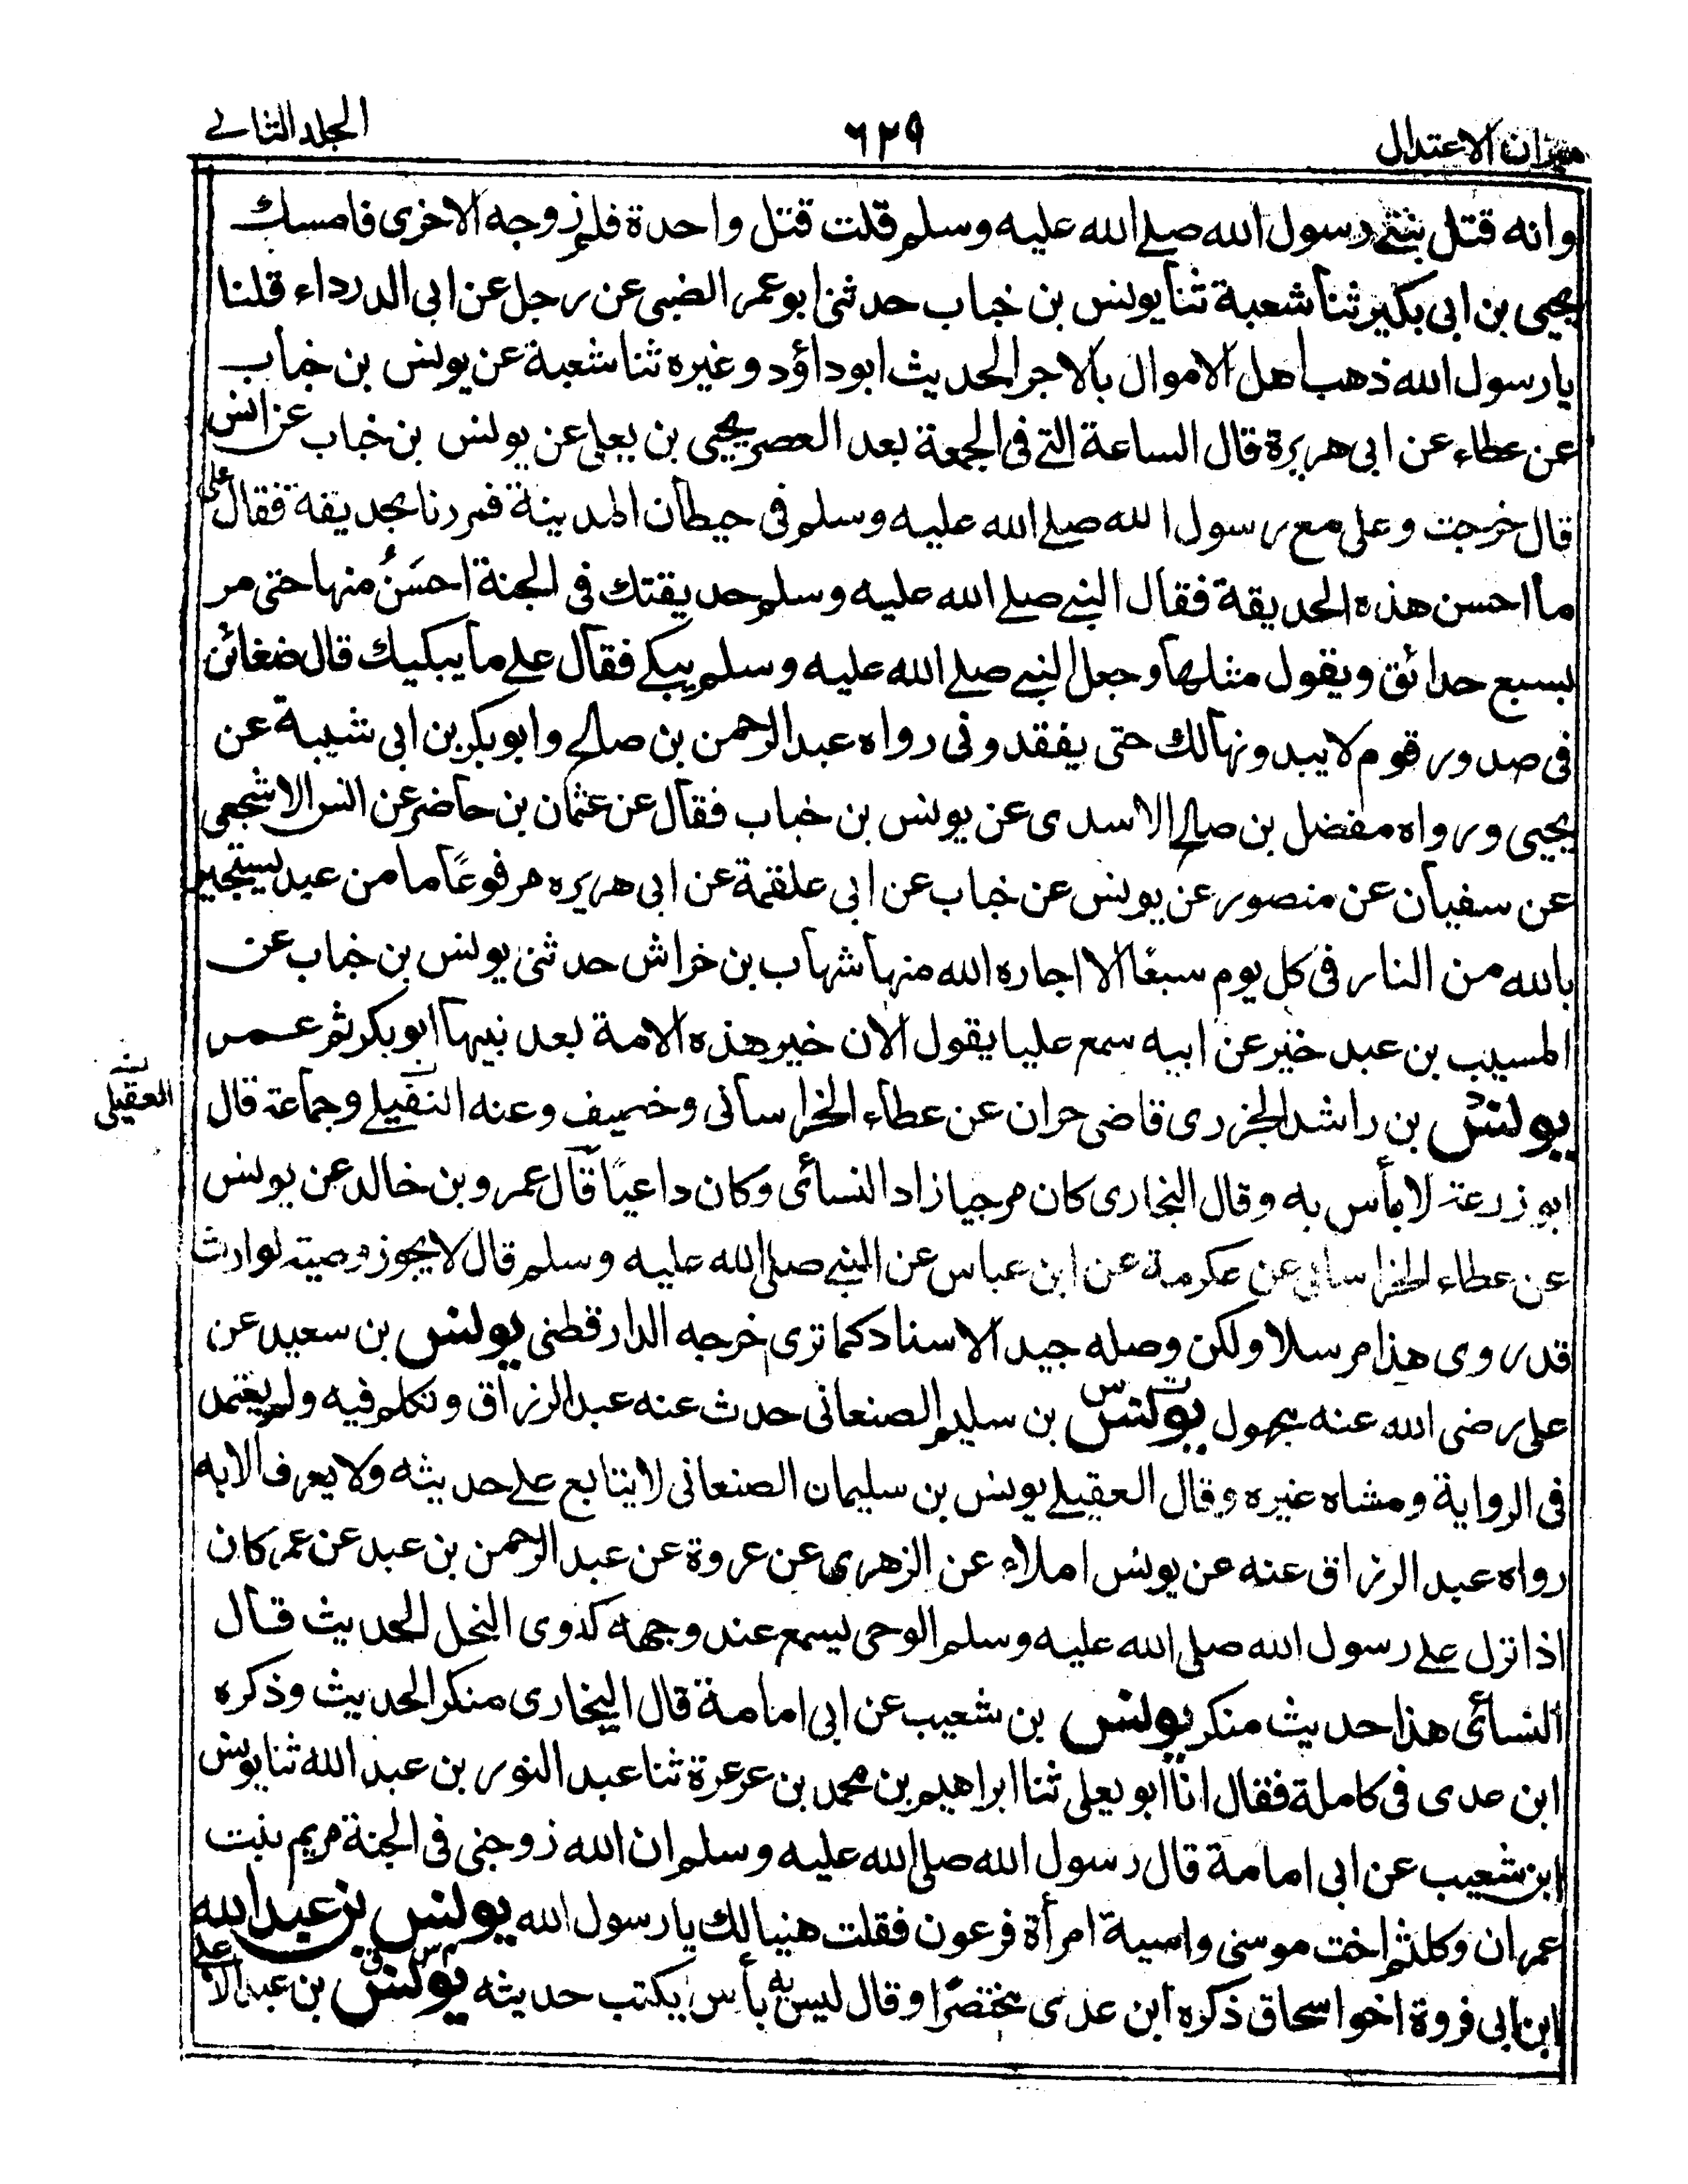 ميزان الاعتدال ٦٢٩ الجلد الثاني
وانه قتل بنتي رسول الله صلى الله عليه وسلم قلت قتل واحدة فلم زوجه الاخرى فامسك
يحيى بن ابى بكير ثنا شعبة ثنا يونس بن خباب حدثنى ابو عمر الضبى عن رجل عن ابى الدرداء قلنا
يا رسول الله ذهب اهل الاموال بالاجر الحديث ابو داؤد وغيره ثنا شعبة عن يونس بن خباب
عن عطاء عن ابى هريرة قال الساعة التى فى الجمعة بعد العصر يحيى بن يعلى عن يونس بن خباب عن انس
قال خرجت وعلى مع رسول الله صلى الله عليه وسلم فى حيطان المدينة فمررنا بحديقة فقال على
ما احسن هذه الحديقة فقال النبى صلى الله عليه وسلم حديقتك فى الجنة احسَنُ منها حتى مر
بسبع حدائق ويقول مثلها وجعل النبى صلى الله عليه وسلم يبكى فقال على ما يبكيك قال ضغائن
فى صدور قوم لا يبدونها لك حتى يفقدونى رواه عبد الرحمن بن صالح وابو بكر بن ابى شيبة عن
يحيى ورواه مفضل بن صالح الاسدى عن يونس بن خباب فقال عن عثمان بن حاضر عن انس الاشجعى
عن سفيان عن منصور عن يونس عن خباب عن ابى علقمة عن ابى هريره مرفوعًا ما من عبد يستجير
بالله من النار فى كل يوم سبعًا الا اجاره الله منها شهاب بن خراش حدثنى يونس بن خباب عن
المسيب بن عبد خير عن ابيه سمع عليا يقول الان خير هذه الامة بعد نبيها ابو بكر ثم عمر
يونس بن راشد الجزرى قاضى حران عن عطاء الخراسانى وخصيف وعنه النفيلى وجماعة قال
العقيلى
ابو زرعة لا بأس به وقال البخارى كان مرجيا زاد النسائى وكان داعيًا قال عمرو بن خالد عن يونس
عن عطاء الخراسانى عن عكرمة عن ابن عباس عن النبى صلى الله عليه وسلم قال لا يجوز وصية لوارث
قد روى هذا مرسلا ولكن وصله جيد الاسناد كما ترى خرجه الدارقطنى يونس بن سعيد عن
على رضى الله عنه مجهول يونس بن سليم الصنعانى حدث عنه عبد الرزاق وتكلم فيه ولم يعتمد
فى الرواية ومشاه غيره وقال العقيلى يونس بن سليمان الصنعانى لا يتابع على حديثه ولا يعرف الا به
رواه عبد الرزاق عنه عن يونس املاء عن الزهرى عن عروة عن عبد الرحمن بن عبد عن عمر كان
اذا نزل على رسول الله صلى الله عليه وسلم الوحى يسمع عند وجهه كدوى النحل الحديث قال
النسائى هذا حديث منكر يونس بن شعيب عن ابى امامة قال البخارى منكر الحديث وذكره
ابن عدى فى كاملة فقال انا ابو يعلى ثنا ابراهيم بن محمد بن عرعرة ثنا عبد النور بن عبد الله ثنا يونس
ابن شعيب عن ابى امامة قال رسول الله صلى الله عليه وسلم ان الله زوجنى فى الجنة مريم بنت
عمران وكلثم اخت موسى واسية امرأة فرعون فقلت هنيا لك يا رسول الله يونس بن عبد الله
ابن ابى فروة اخو اسحاق ذكره ابن عدى مختصرًا وقال ليس به بأس يكتب حديثه يونس بن عبد الاعلى